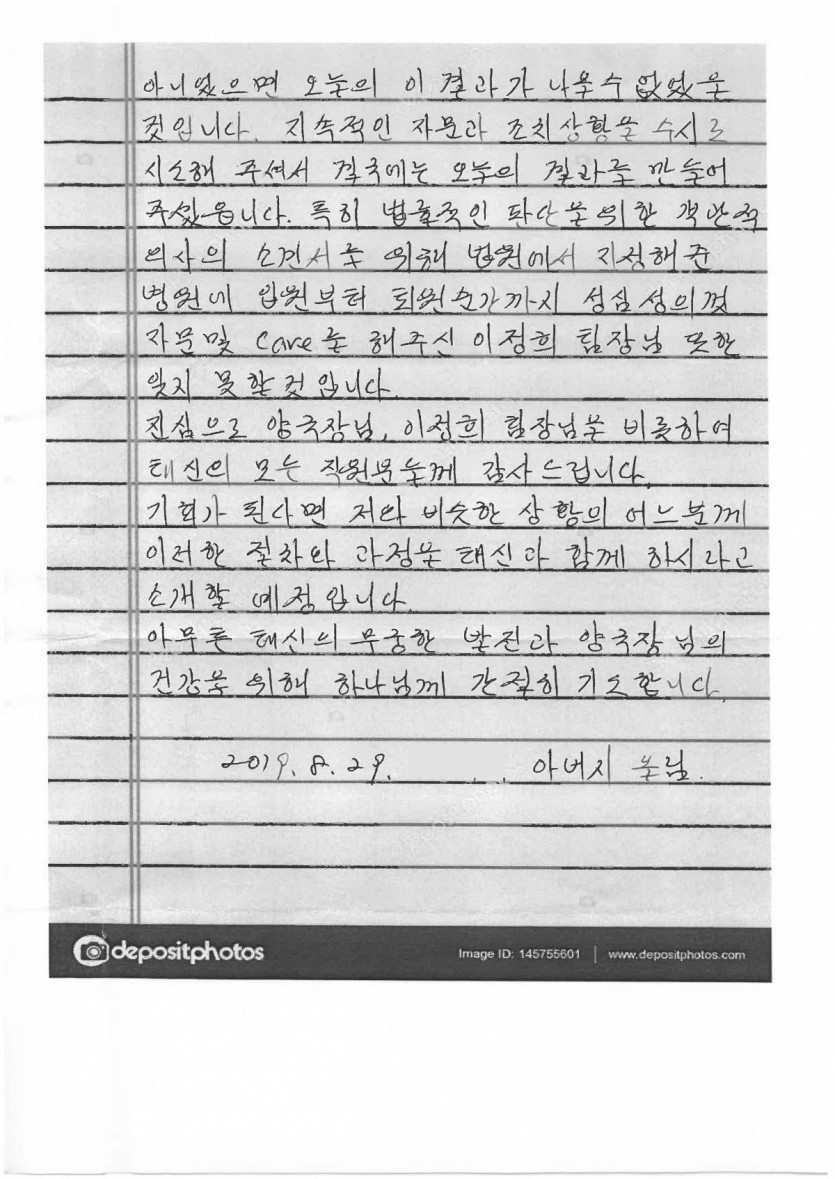 아니었으면 오늘의 이 결과가 나올 수 없었을
것입니다. 지속적인 자문과 조치상황을 수시로
시소해 주셔서 결국에는 오늘의 결과를 만들어
주셨읍니다. 특히 법률적인 판단을 위한 객관적
의사의 소견서를 위해 법원에서 지정해준
병원에 입원부터 퇴원순간까지 성심성의껏
자문및 care를 해주신 이정희 팀장님 또한
잊지 못할것입니다.
진심으로 양국장님, 이정희 팀장님을 비롯하여
태신의 모든 직원분들께 감사드립니다.
기회가 된다면 저와 비슷한 상황의 어느분께
이러한 절차와 과정을 태신과 함께 하시라고
소개할 예정입니다.
아무튼 태신의 무궁한 발전과 양국장님의
건강을 위해 하나님께 간절히 기도합니다.
2019. 8. 29. 아버지 올림.
depositphotos
Image ID: 145755601 | www.depositphotos.com